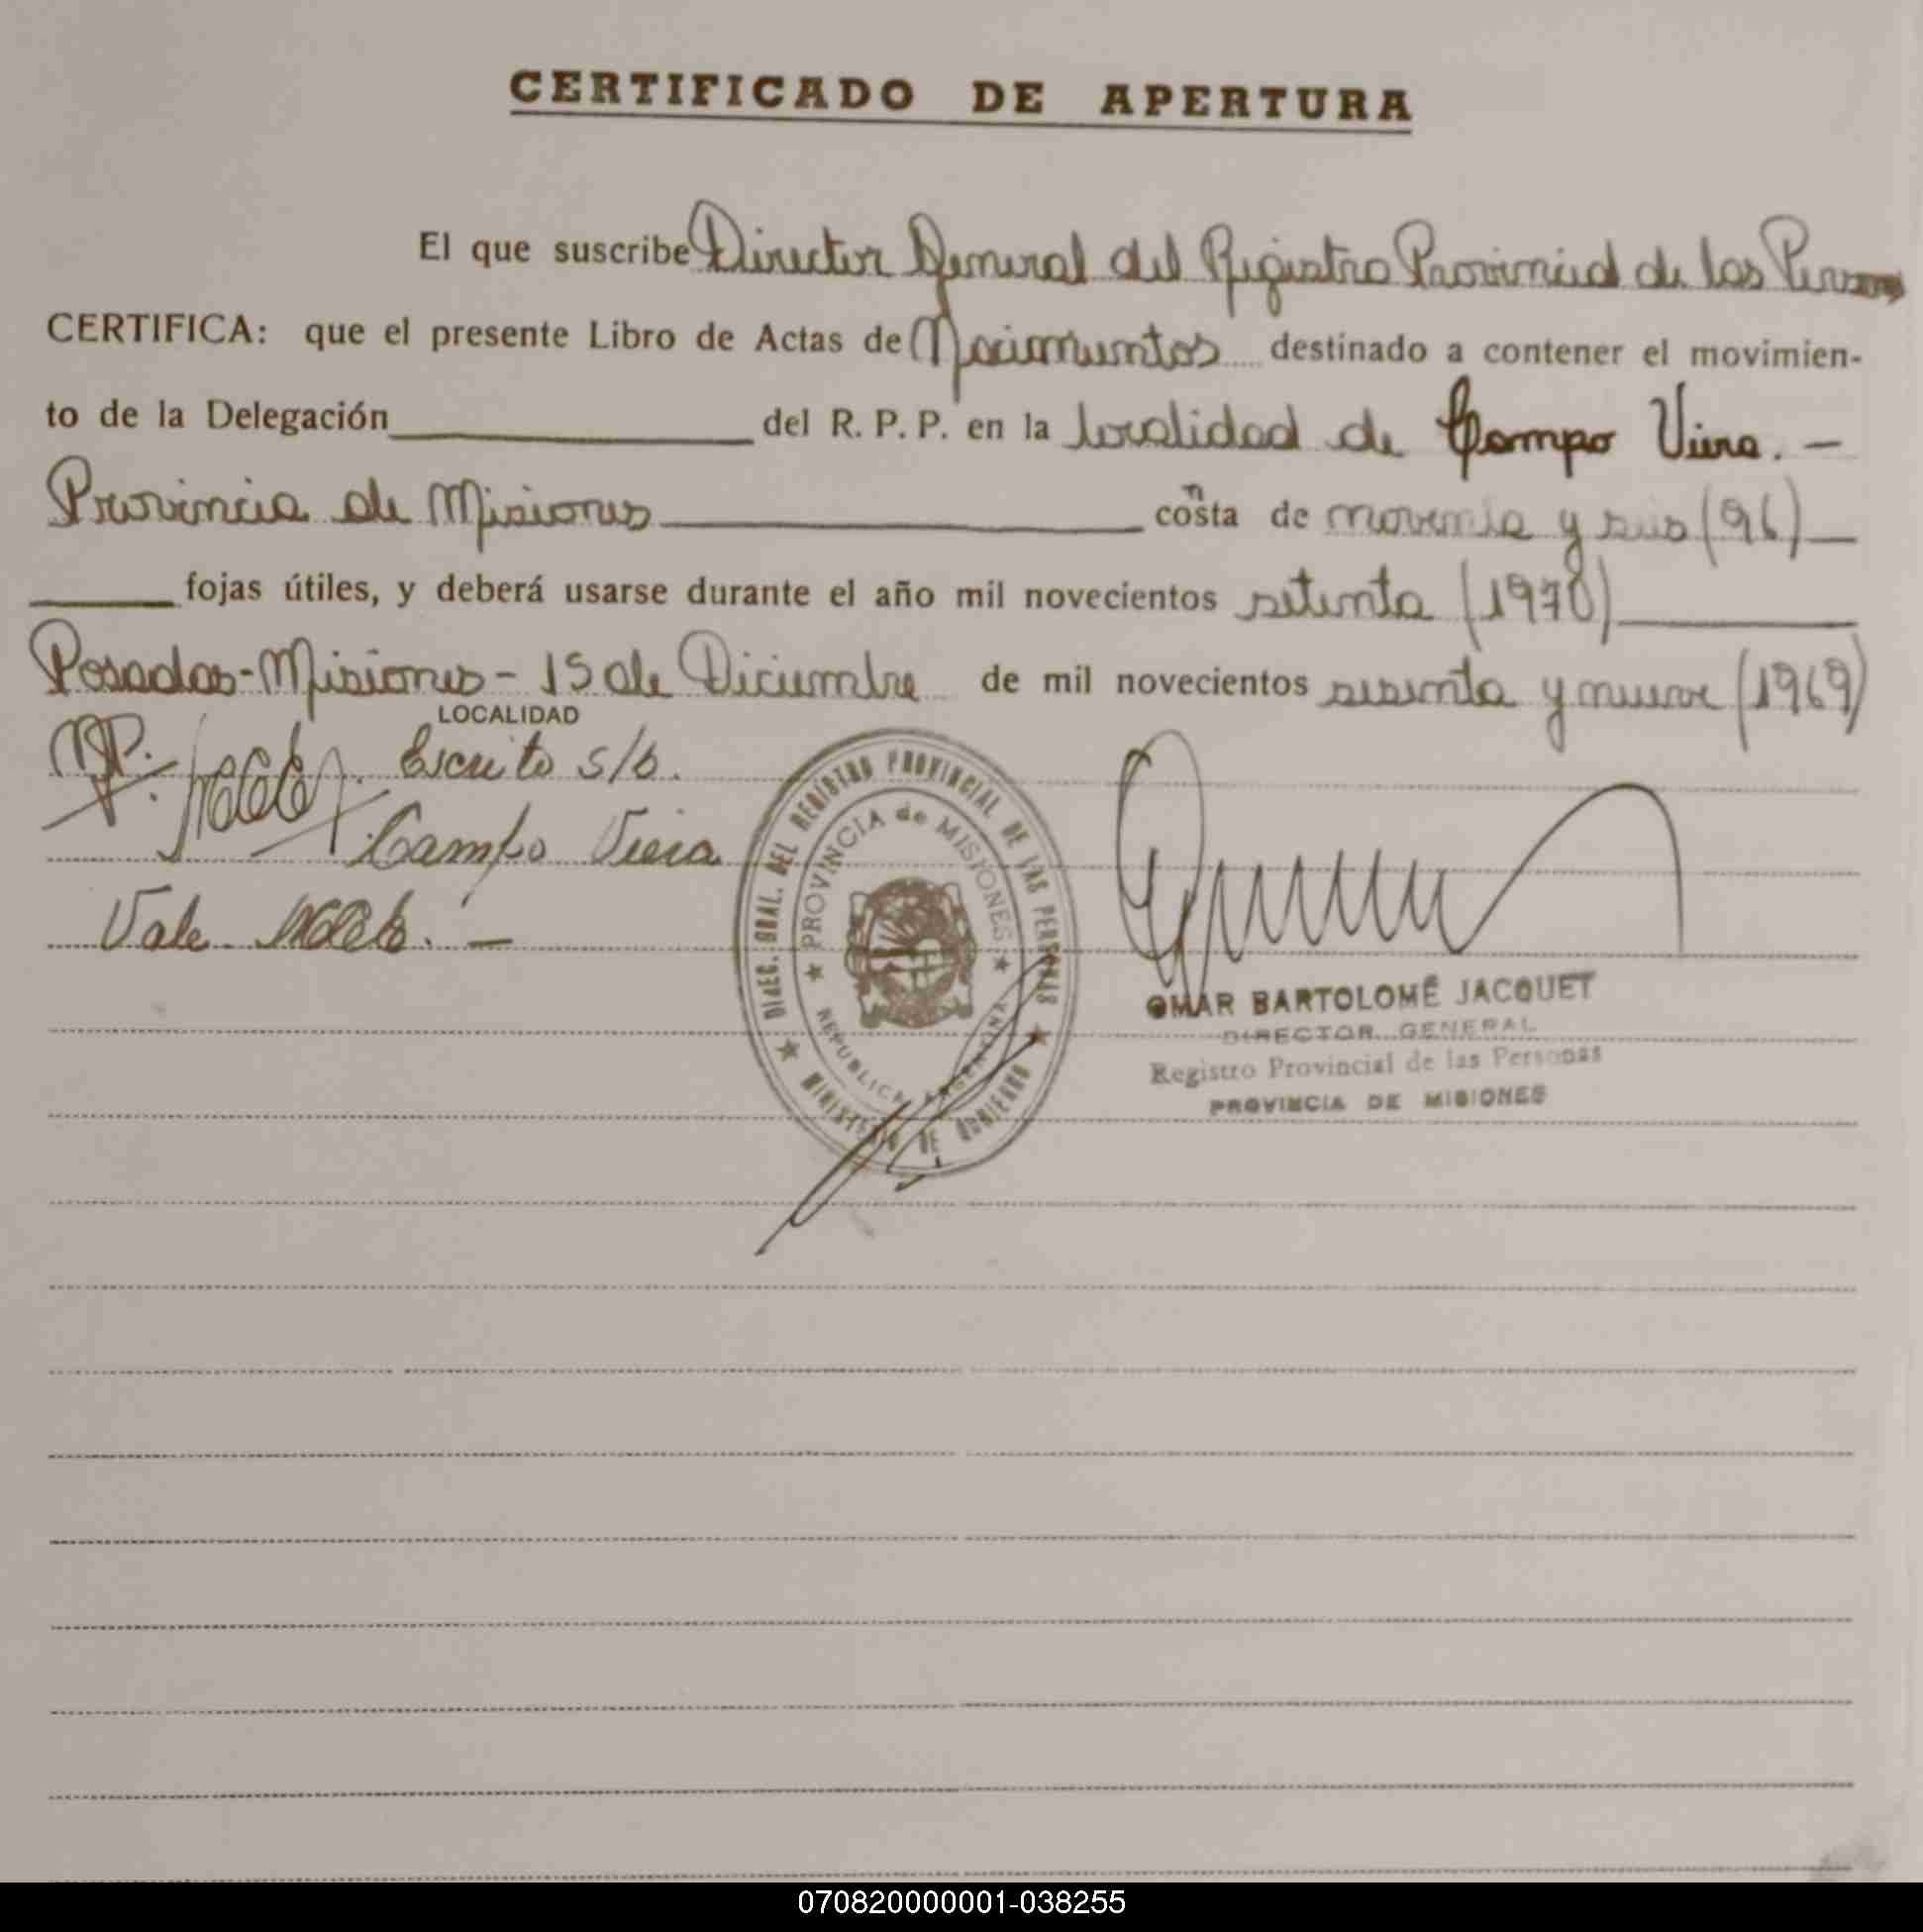 CERTIFICADO DE APERTURA
El que suscribe Director General del Registro Provincial de las Personas
CERTIFICA: que el presente Libro de Actas de Nacimientos destinado a contener el movimien-
to de la Delegación del R. P. P. en la localidad de Campo Viera. -
Provincia de Misiones consta de noventa y seis (96)
fojas útiles, y deberá usarse durante el año mil novecientos setenta (1970)
Posadas-Misiones-15 de Diciembre de mil novecientos sesenta y nueve (1969)
LOCALIDAD
Escrito s/b.
Campo Viera
Vale
DIREC. GRAL. DEL REGISTRO PROVINCIAL DE LAS PERSONAS
PROVINCIA de MISIONES
REPUBLICA ARGENTINA
MINISTERIO DE GOBIERNO
OMAR BARTOLOMÉ JACQUET
DIRECTOR GENERAL
Registro Provincial de las Personas
PROVINCIA DE MISIONES
070820000001-038255